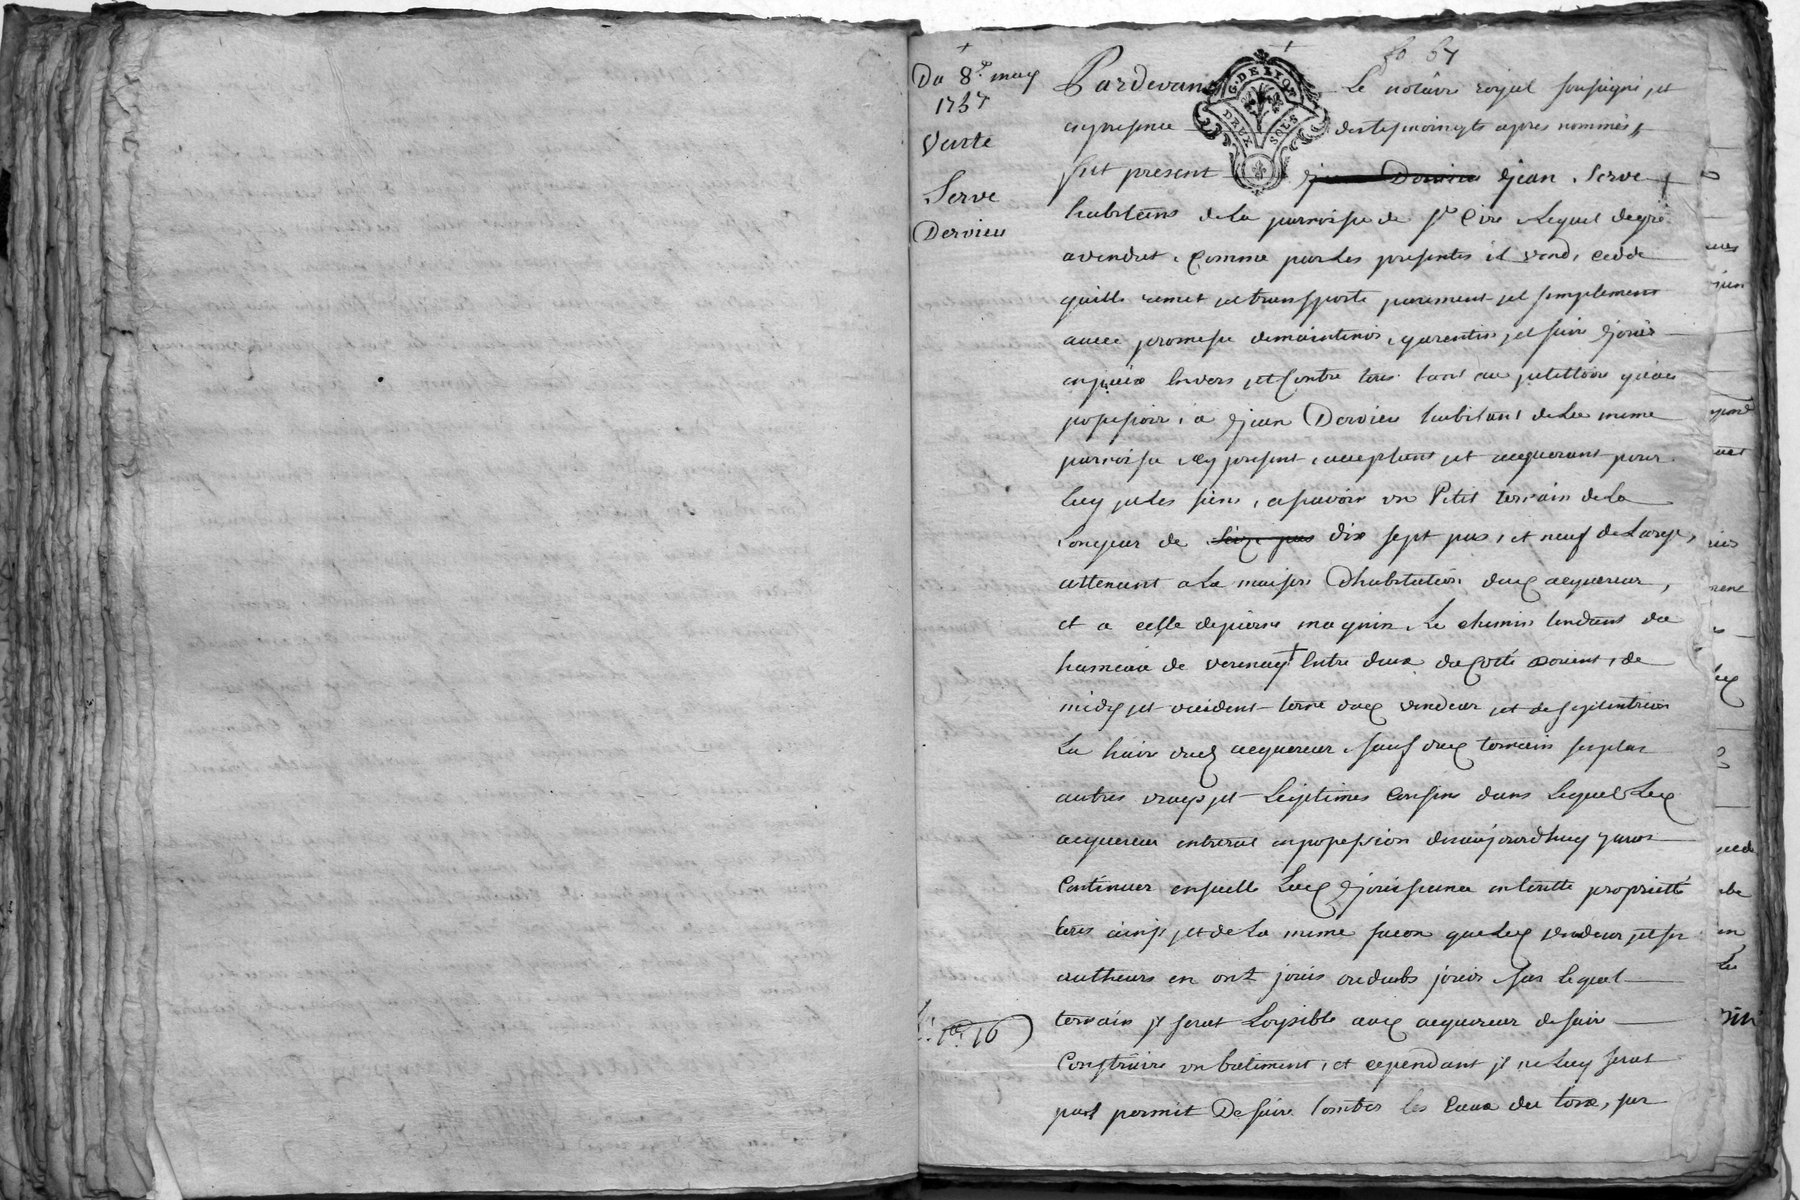 Du 8e may
1757
Vante
Serve
Dervieu
fo 57
Pardevant Le notaire royal soussigné, et
G. DE LYON
DEUX SOLS
en presence des tesmoingts apres nommés,
fut present Jean Dervieu Jean Serve
habitant de la parroisse de St Cire Lequel de gré
a vendut, Comme par les presentes il vend, cedde
quitte remet et transporte purement et simplement
avec promesse de maintenir, garentir, et faire Jouir
en paix Envers et Contre tous tant au petittoire qu'au
possessoir, a Jean Dervieu habitant de la meme
parroisse icy present, acceptant et acquerant pour
luy et les siens, a sçavoir un Petit terrain de La
Longeur de seize pas dix sept pas, et neuf de Large,
attenant a La maison D'habitation dud acquereur,
et a celle de pierre maguin, Le chemin tendant du
hameau de verenay Entre deux du Coté dorient, de
midy et occident terre dud vendeur et de septentrion
La haire dud acquereur, sauf dud terrain ses plus
autres vrays et Legitimes Confins dans Lequel Led
acquereur entrerat en possession des aujourdhuy pour
Continuer ensuitte Lad Jouissance en toutte proprietté
tout ainsi et de La meme facon que Led vendeur et ses
autheurs en ont jouis ou dubs jouir, sur lequel
terrain il serat Loysible aud acquereur de faire
Construire un batiment, et cependant il ne Luy serat
pas permit De faire tomber les Eaux du toix, sur